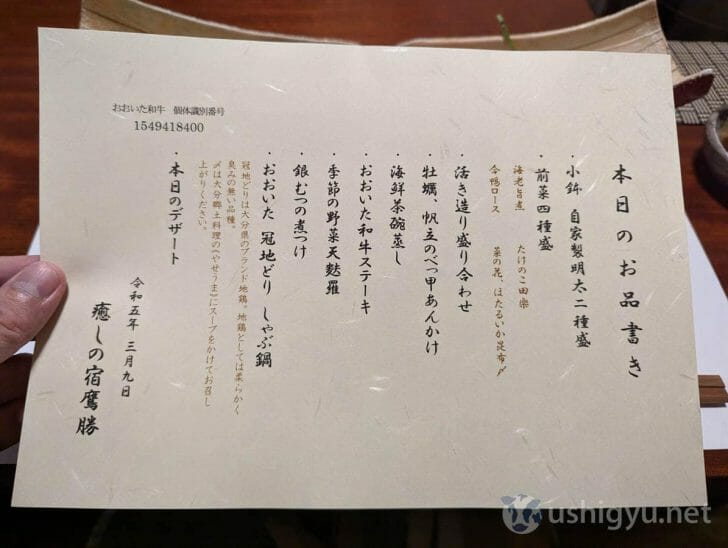 本日のお品書き
・小鉢 自家製明太二種盛
・前菜四種盛
海老旨煮 たけのこ田楽
合鴨ロース 菜の花、ほたるいか昆布〆
・活き造り盛り合わせ
・牡蠣、帆立のべっ甲あんかけ
・海鮮茶碗蒸し
・おおいた和牛ステーキ
・季節の野菜天麩羅
・銀むつの煮つけ
・おおいた 冠地どり しゃぶ鍋
冠地どりは大分県のブランド地鶏。地鶏としては柔らかく
臭みの無い品種。
〆は大分郷土料理の《やせうま》にスープをかけてお召し
上がりください。
・本日のデザート
令和五年 三月九日
癒しの宿鷹勝
おおいた和牛 個体識別番号
1549418400
ushigyu.net